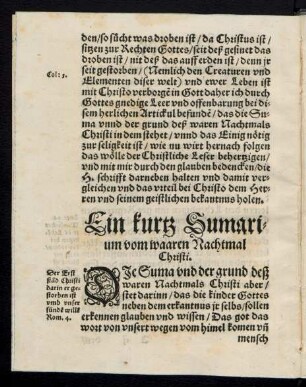 den / so sücht was droben ist / da Christus ist /
sitzen zur Rechten Gottes / seit deß gesinet das
droben ist / nit deß das auff erden ist / denn jr
Col: 3.
seit gestorben / (Nemlich den Creaturen vnd
Elementen diser welt) vnd ewer Leben ist
mit Christo verborgē in Gott daher ich durch
Gottes gnedige Leer vnd offenbarung bei di-
sem herlichen Artickul befunde / das die Su-
ma vnnd der grund deß waren Nachtmals
Christi in dem stehet / vnnd das Einig nötig
zur seligkeit ist / wie nu wirt hernach folgen
das wölle der Christliche Leser behertzigen /
vnd mit mir durch den glauben bedencken / die
H. schrifft darneben halten vnd damit ver-
gleichen vnd das vrteil bei Christo dem Her-
ren vnd seinem geistlichen bekantnus holen.
Ein kurtz Sumari-
um vom waaren Nachtmal
Christi.
Der Test
stād Christi
darin er ge-
storben ist
vmb vnser
sünde will[]
Rom. 4.
DJe Suma vnd der grund deß
waren Nachtmals Christi aber /
stet darinn / das die kinder Gottes
neben dem erkantnus jr selbs / sollen
erkennen glauben vnd wissen / Das got das
wort von vnsert wegen vom himel komen vn̄
mensch